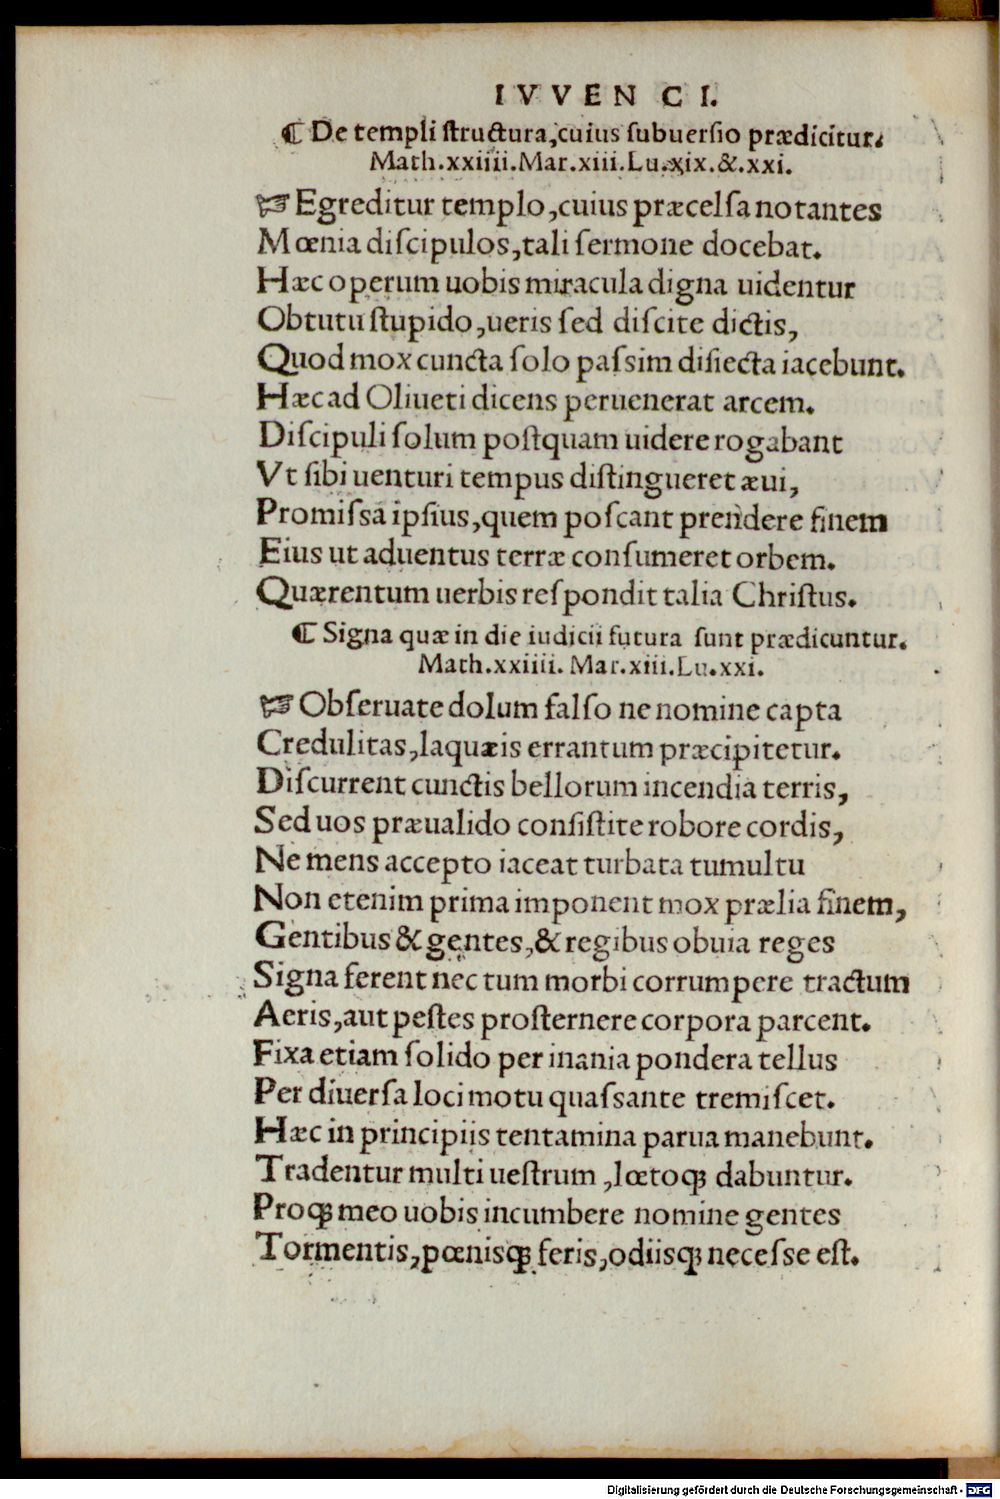 IVVENCI.
¶ De templi ſtructura, cuius ſubuerſio prædicitur.
Math.xxiiii.Mar.xiii.Lu.xix.&.xxi.
☞Egreditur templo, cuius præcelſa notantes
Mœnia diſcipulos, tali ſermone docebat.
Hæc operum uobis miracula digna uidentur
Obtutu ſtupido, ueris ſed diſcite dictis,
Quod mox cuncta ſolo paſsim diſiecta iacebunt.
Hæc ad Oliueti dicens peruenerat arcem.
Diſcipuli ſolum poſtquam uidere rogabant
Vt ſibi uenturi tempus diſtingueret æui,
Promiſsa ipſius, quem poſcant prendere finem
Eius ut aduentus terræ conſumeret orbem.
Quærentum uerbis reſpondit talia Chriſtus.
¶ Signa quæ in die iudicii futura ſunt prædicuntur.
Math.xxiiii. Mar.xiii.Lu.xxi.
☞Obſeruate dolum falſo ne nomine capta
Credulitas, laquæis errantum præcipitetur.
Diſcurrent cunctis bellorum incendia terris,
Sed uos præualido conſiſtite robore cordis,
Ne mens accepto iaceat turbata tumultu
Non etenim prima imponent mox prælia finem,
Gentibus & gentes, & regibus obuia reges
Signa ferent nec tum morbi corrumpere tractum
Aeris, aut peſtes proſternere corpora parcent.
Fixa etiam ſolido per inania pondera tellus
Per diuerſa loci motu quaſsante tremiſcet.
Hæc in principiis tentamina parua manebunt.
Tradentur multi ueſtrum, lœtoq; dabuntur.
Proq; meo uobis incumbere nomine gentes
Tormentis, pœnisq; feris, odiisq; neceſse eſt.
Digitalisierung gefördert durch die Deutsche Forschungsgemeinschaft - DFG